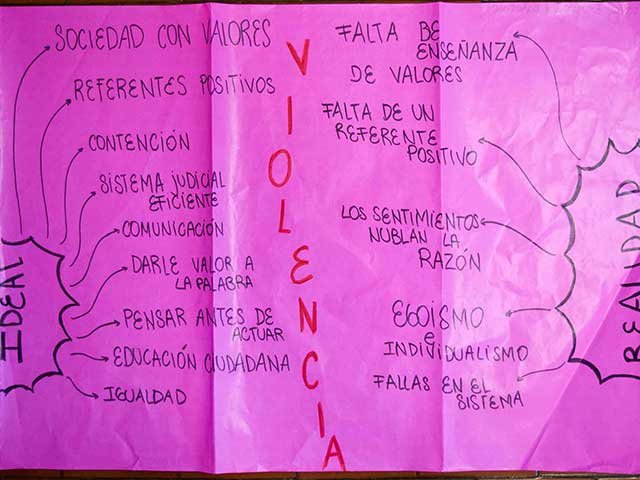 IDEAL
SOCIEDAD CON VALORES
REFERENTES POSITIVOS
CONTENCIÓN
SISTEMA JUDICIAL
EFICIENTE
COMUNICACIÓN
DARLE VALOR A
LA PALABRA
PENSAR ANTES DE
ACTUAR
EDUCACIÓN CIUDADANA
IGUALDAD
VIOLENCIA
FALTA DE
ENSEÑANZA
DE VALORES
FALTA DE UN
REFERENTE
POSITIVO
LOS SENTIMIENTOS
NUBLAN LA
RAZÓN
EGOISMO
e
INDIVIDUALISMO
FALLAS EN EL
SISTEMA
REALIDAD